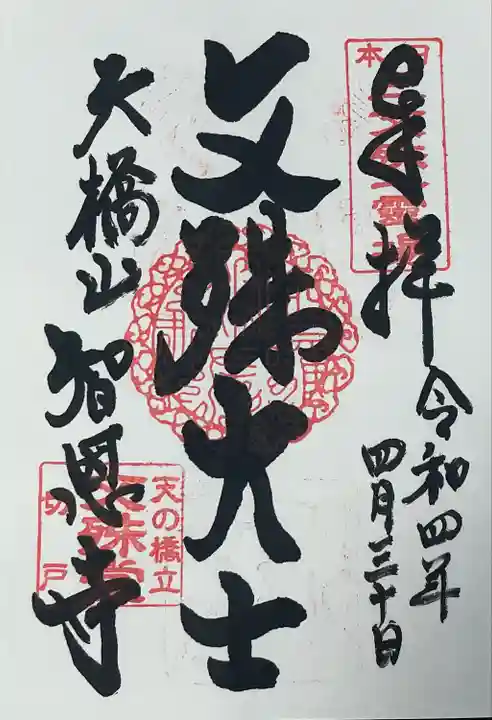 奉拝
令和四年
四月三十日
文殊大士
天橋山
智恩寺
天の橋立
文殊堂
切戸